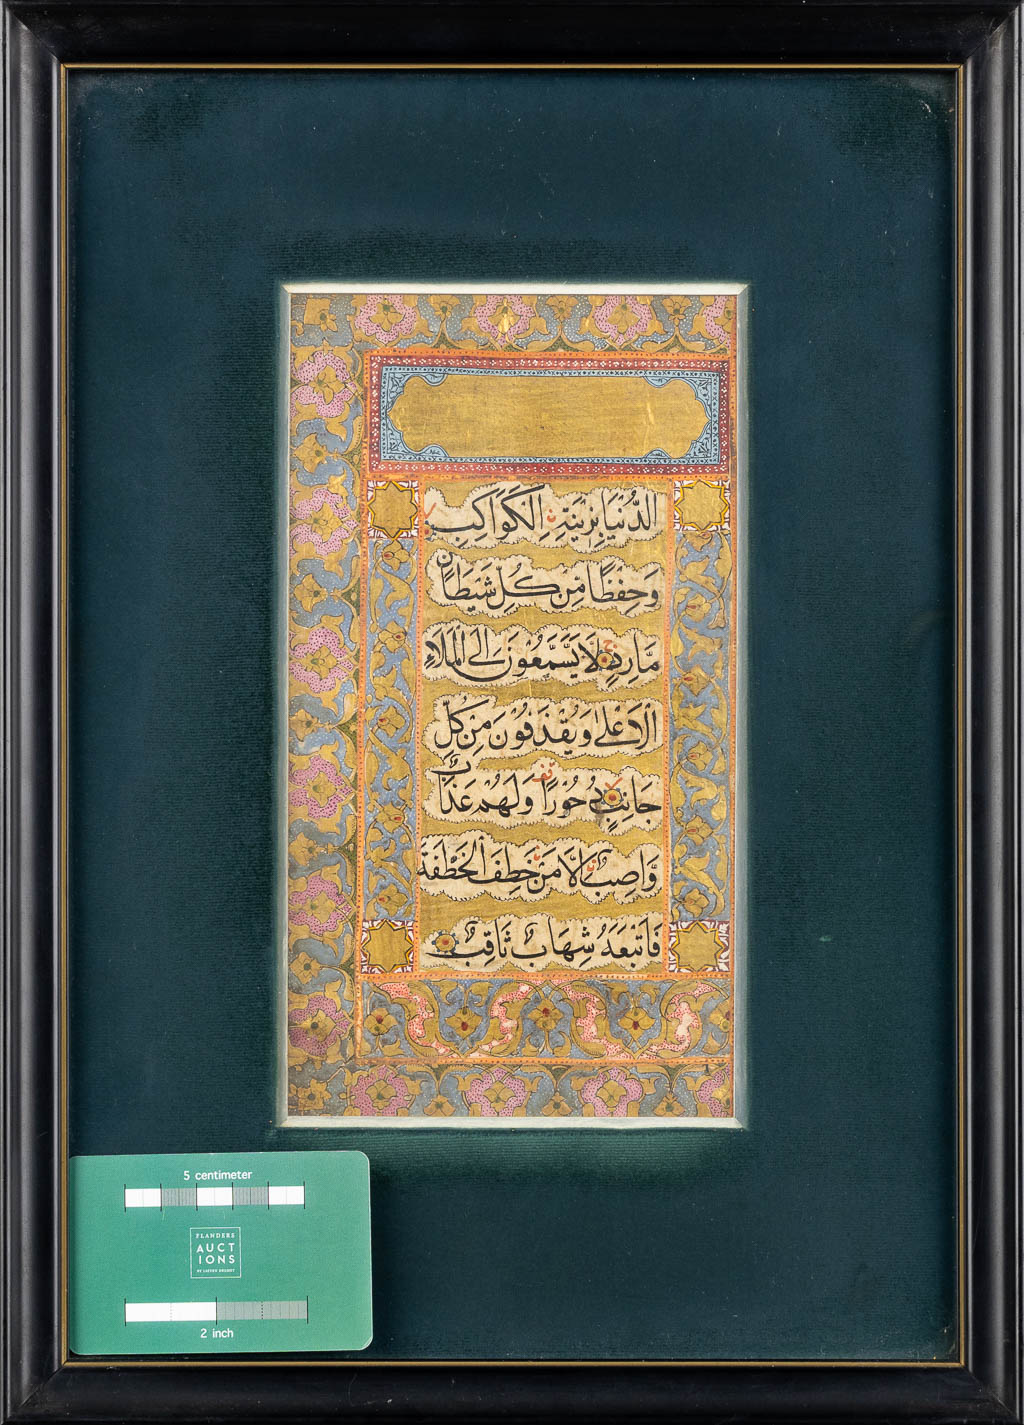 الدُّنْيَا بِزِينَةٍ اِلْكَوَاكِبِ
وَحِفْظًا مِّن كُلِّ شَيْطَانٍ
مَّارِدٍ لَا يَسَّمَّعُونَ إِلَى الْمَلَاءِ
الْاَعْلٰى وَيُقْذَفُونَ مِن كُلِّ
جَانِبٍ دُحُورًا وَلَهُمْ عَذَابٌ
وَّاصِبٌ اِلَّا مَنْ خَطِفَ الْخَطْفَةَ
فَاَتْبَعَهُ شِهَابٌ ثَاقِبٌ
5 centimeter
FLANDERS
AUCT
IONS
2 inch